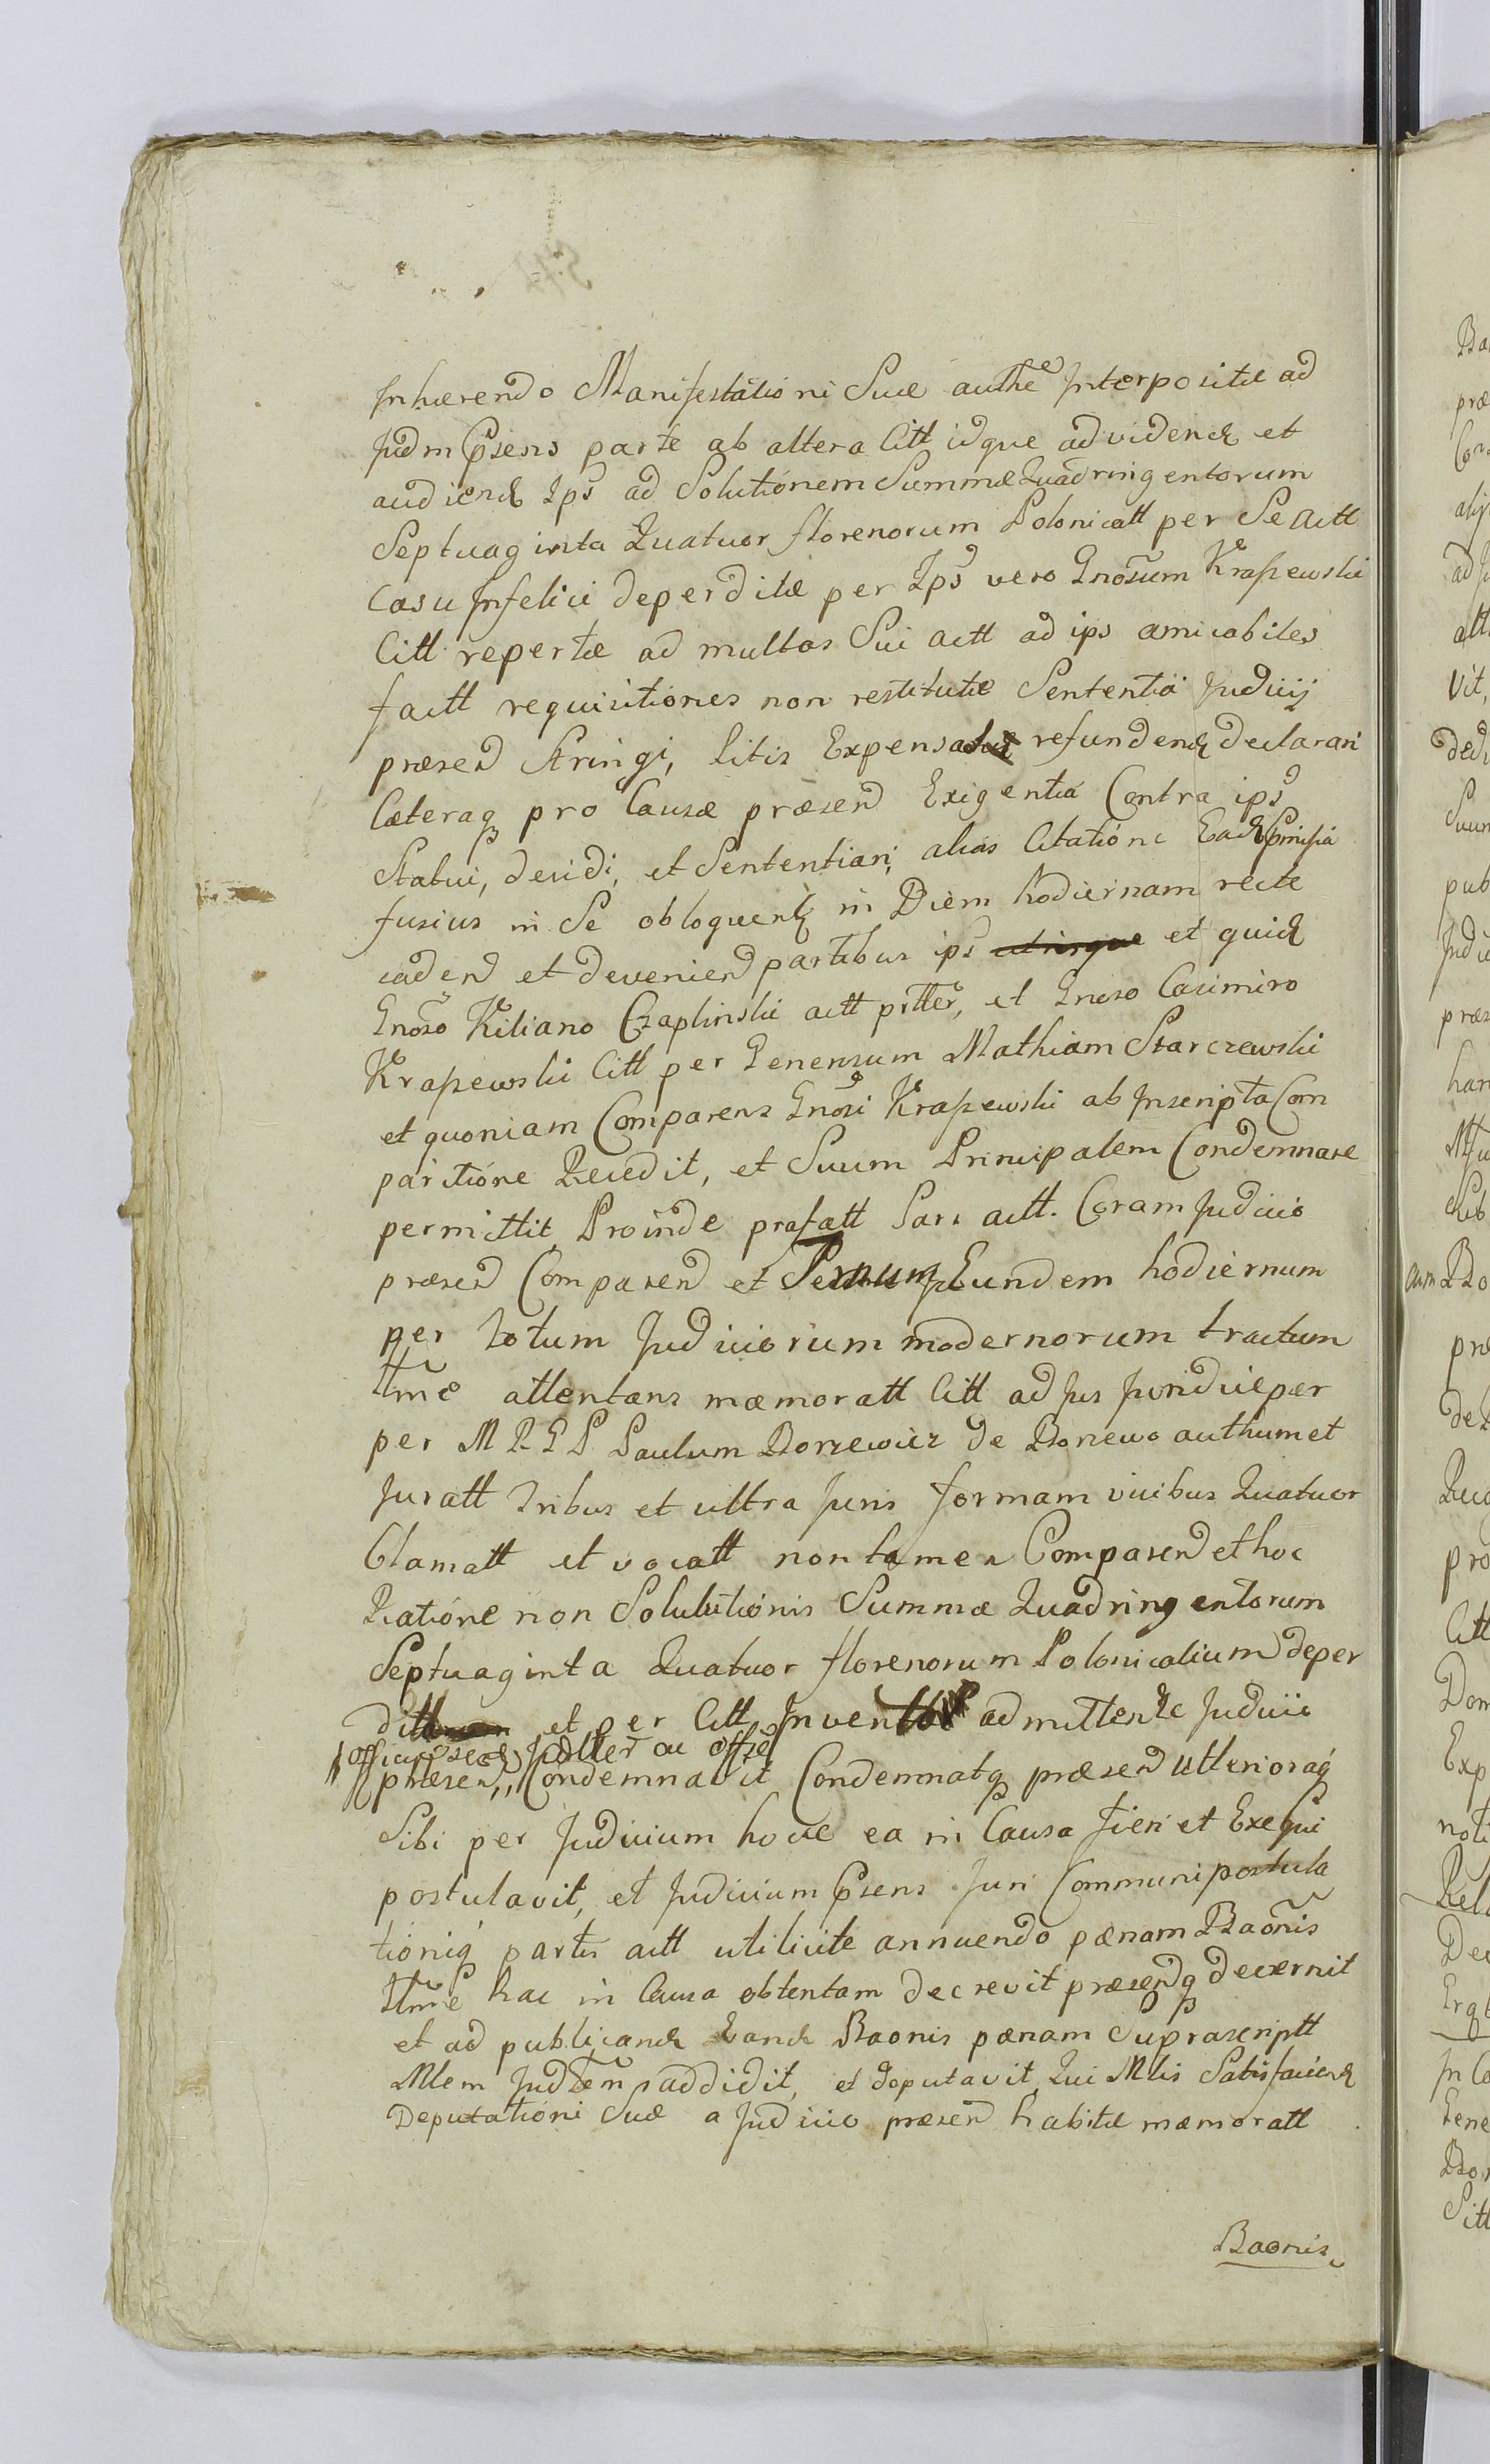 Inhærendo Manifestationi Suæ authe Interpositæ ad
Judm Psens parte ab altera Citt idque ad videnđ et
audienđ Ips ad Solutionem Summæ Quadringentorum
Septuaginta Quatuor florenorum Polonicatt per Se Actt
Casu Infelici deperditæ per Ips vero Gnosum Krapewski
Citt repertæ ad multas Sui actt ad ips amicabiles
factt requisitiones non restitutæ Sententiá Judicij
præsen Stringi, litis Expensas refundenđ declarari
Cæteraq pro Causæ præsen Exigentiá Contra ips
Statui, decidi, et Sententiari, alias Citatióne
fusius in Se obloquent in Diem hodiernam recte
caden et devenien partibus ips et quid
Gnoso Kiliano Czaplinski actt pstter, et Gneso Casimiro
Krapewski Citt per Generosum Mathiam Starczewski
et quoniam Comparens Gnosi Krapewski ab Inscripta Com
paritióne Recedit, et Suum Principalem Condemnare
permittit Proinde prafatt Pars actt. Coram Judicio
præsen Comparen et Eundem hodiernum
per totum Judiciorum modernorum tractum
ttme attentans mæmoratt Citt ad Jus Juridice per
per M R G P Paulum Borzewicz de Borzewo authum et
Juratt Tribus et ultra Juris formam vicibus Quatuor
Clamatt et vocatt non tamen Comparen et hoc
Ratióne non Solulutiónis Summæ Quadringentorum
Septuaginta Quatuor florenorum Polonicalium deper
ditt et per Citt Inventæ admittente Judicio
præsen,, Condemnavit Condemnatq præsen ulterioraq
Sibi per Judicium hocce ea in Causa fieri et Exequi
postulavit, et Judicium Psens Juri Communi postula
tioniq partis actt utilicite annuendo pænam Baonis
ttme hac in Causa obtentam decrevit præsenq decernit
et ad publicanđ Eanđ Baonis pænam Suprascriptt
Mlem Judlem addidit, et deputavit, Qui Mlis Satisfacienđ
Deputationi Suæ a Judicio præsen habitæ mæmoratt
Baonis